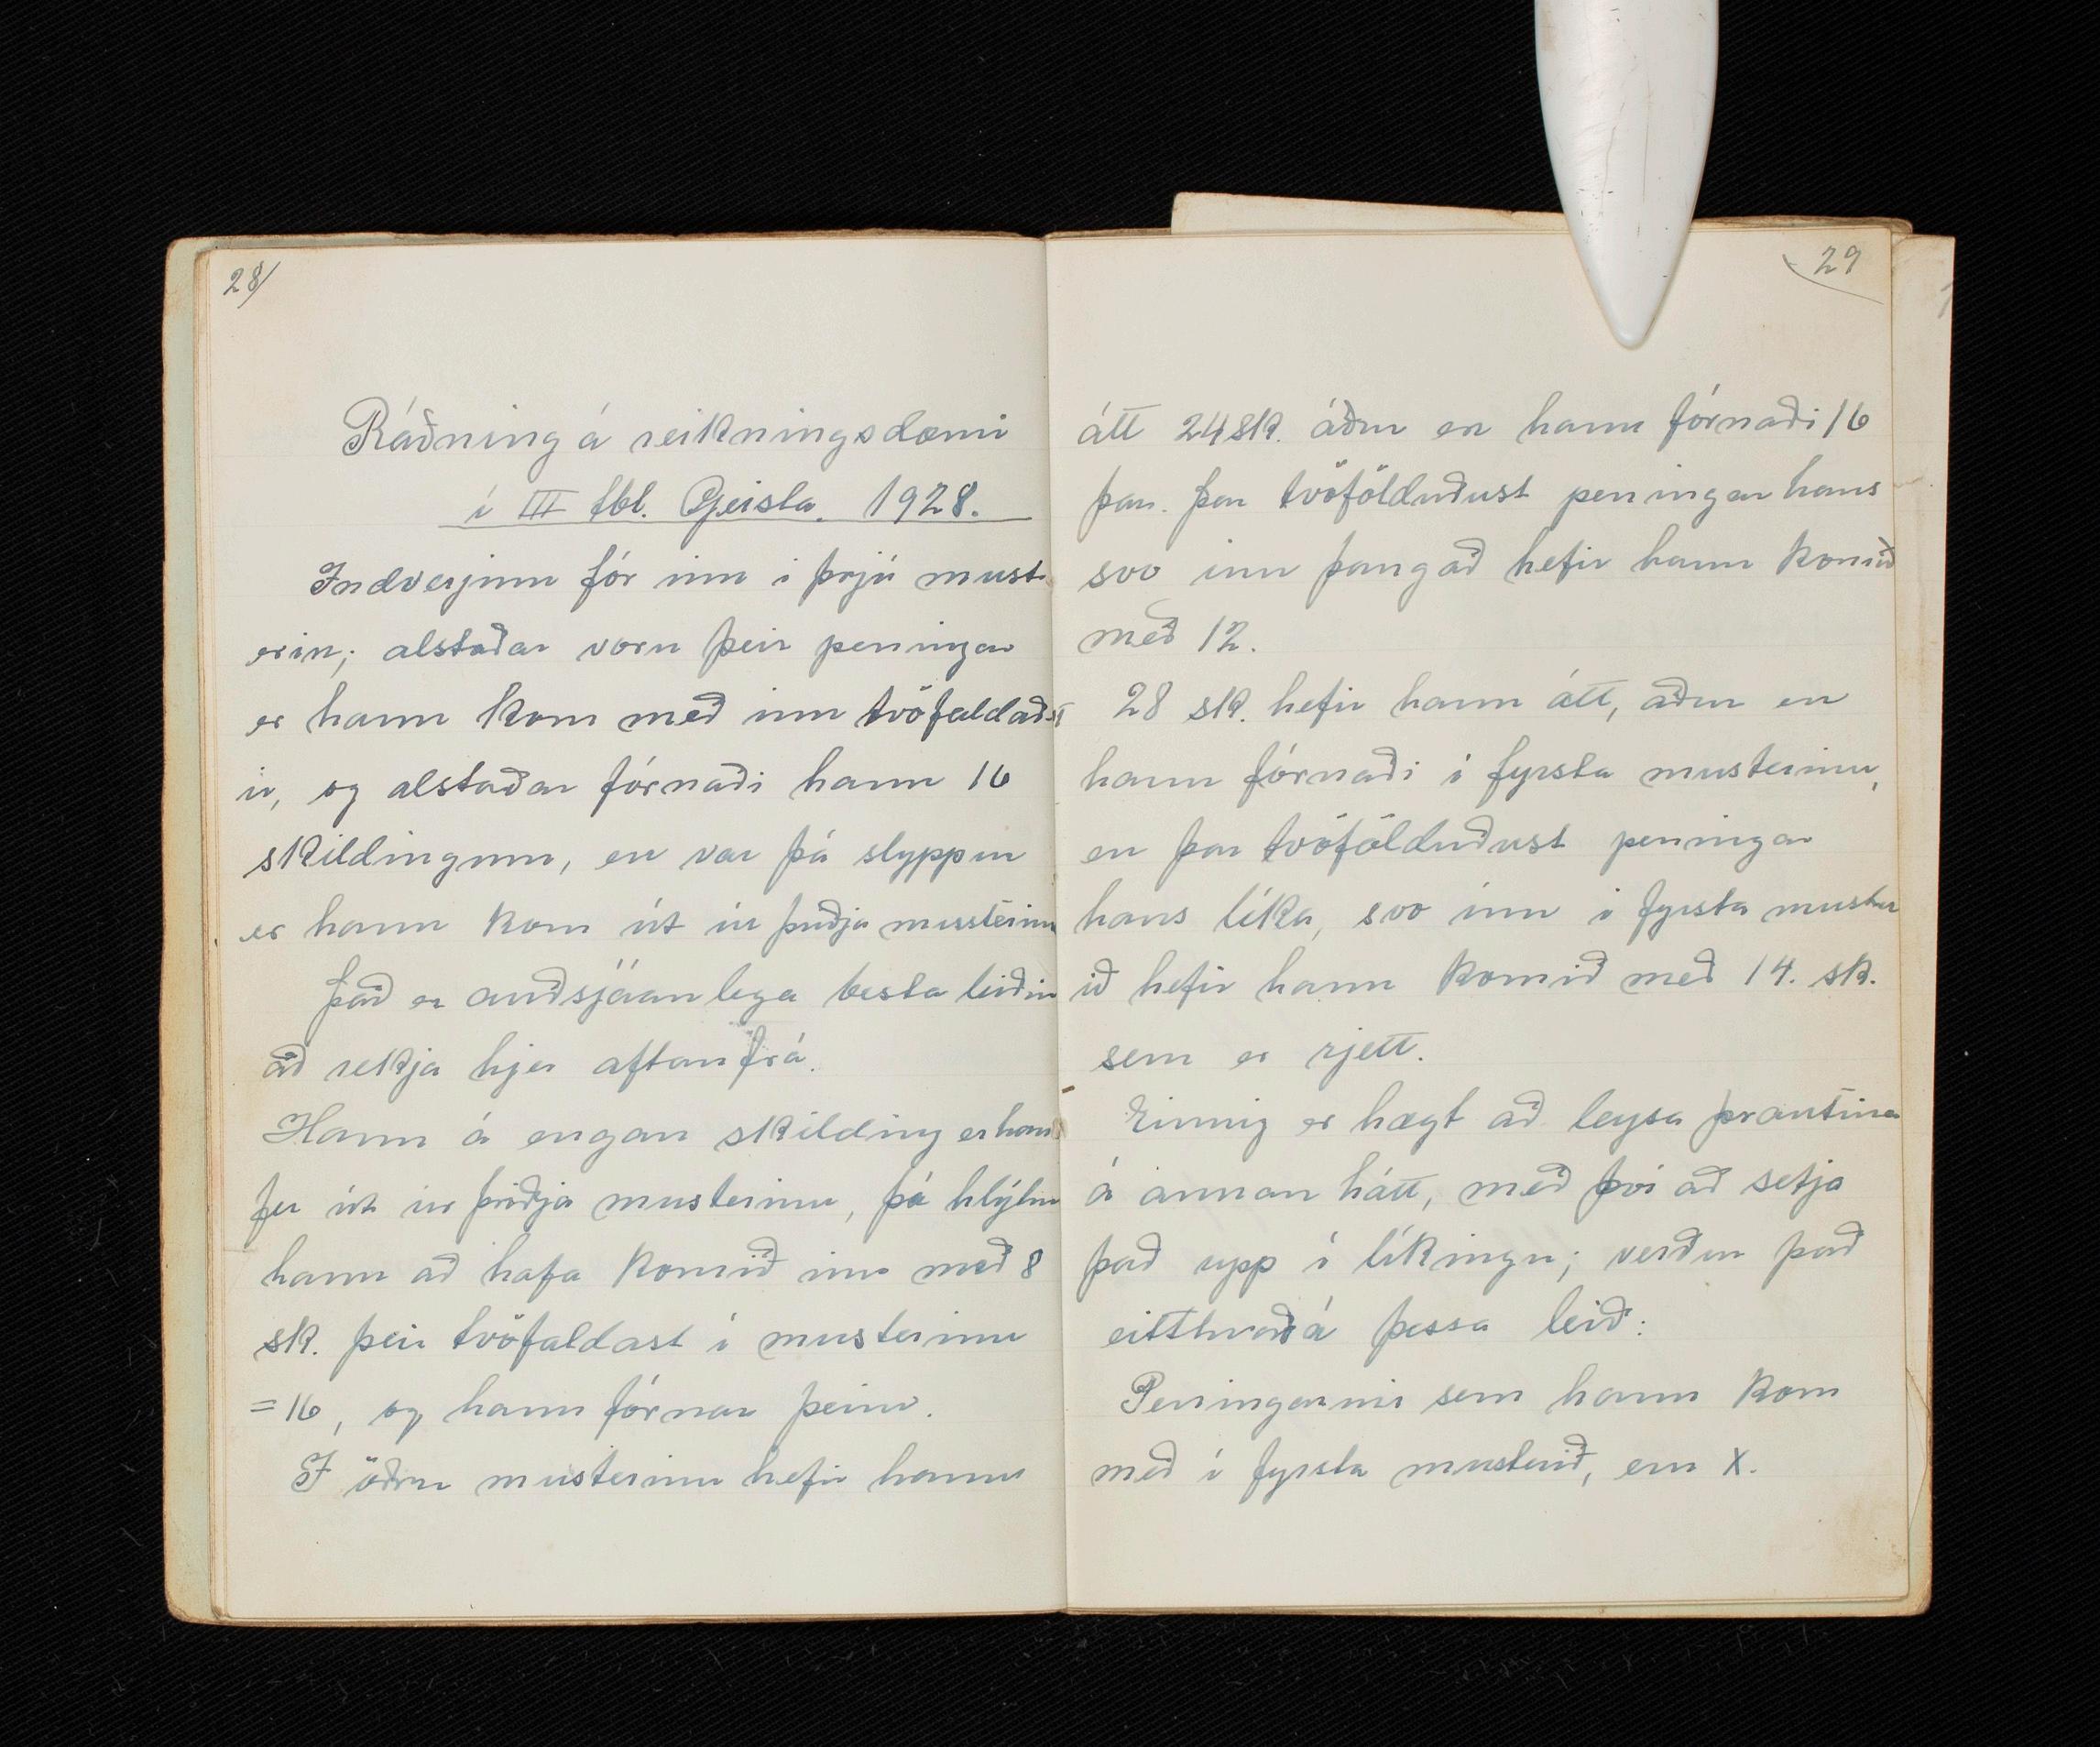 28/
Ráðning á reikningsdæmi
í III tbl. Geisla. 1928.
Indverjinn fór inn í þrjú must-
erin; alstaðar voru þeir peningar
er hann kom með inn tvöfaldað-
ir, og alstaðar fórnaði hann 16
skildingum, en var þá slyppur
er hann kom út úr þriðja musterinu
Það er auðsjáanlega besta leiðin
að rekja hjer aftanfrá.
Hann á engan skilding er hann
fer út úr þriðja musterinu, þá hlýtur
hann að hafa komið inn með 8
sk. þeir tvöfaldast í musterinu
= 16, og hann fórnar þeim.
Í öðru musterinu hefir hann
29
átt 24 sk. áður en hann fórnaði 16
þar. Þar tvöfölduðust peningar hans
svo inn þangað hefir hann komið
með 12.
28 sk. hefir hann átt, áður en
hann fórnaði í fyrsta musterinu,
en þar tvöfölduðust peningar
hans líka, svo inn í fyrsta muster
ið hefir hann komið með 14. sk.
sem er rjett.
Einnig er hægt að leysa þrautina
á annan hátt, með því að setja
það upp í líkingu; verður það
eitthvað á þessa leið:
Peningarnir sem hann kom
með í fyrsta musterið, eru x.